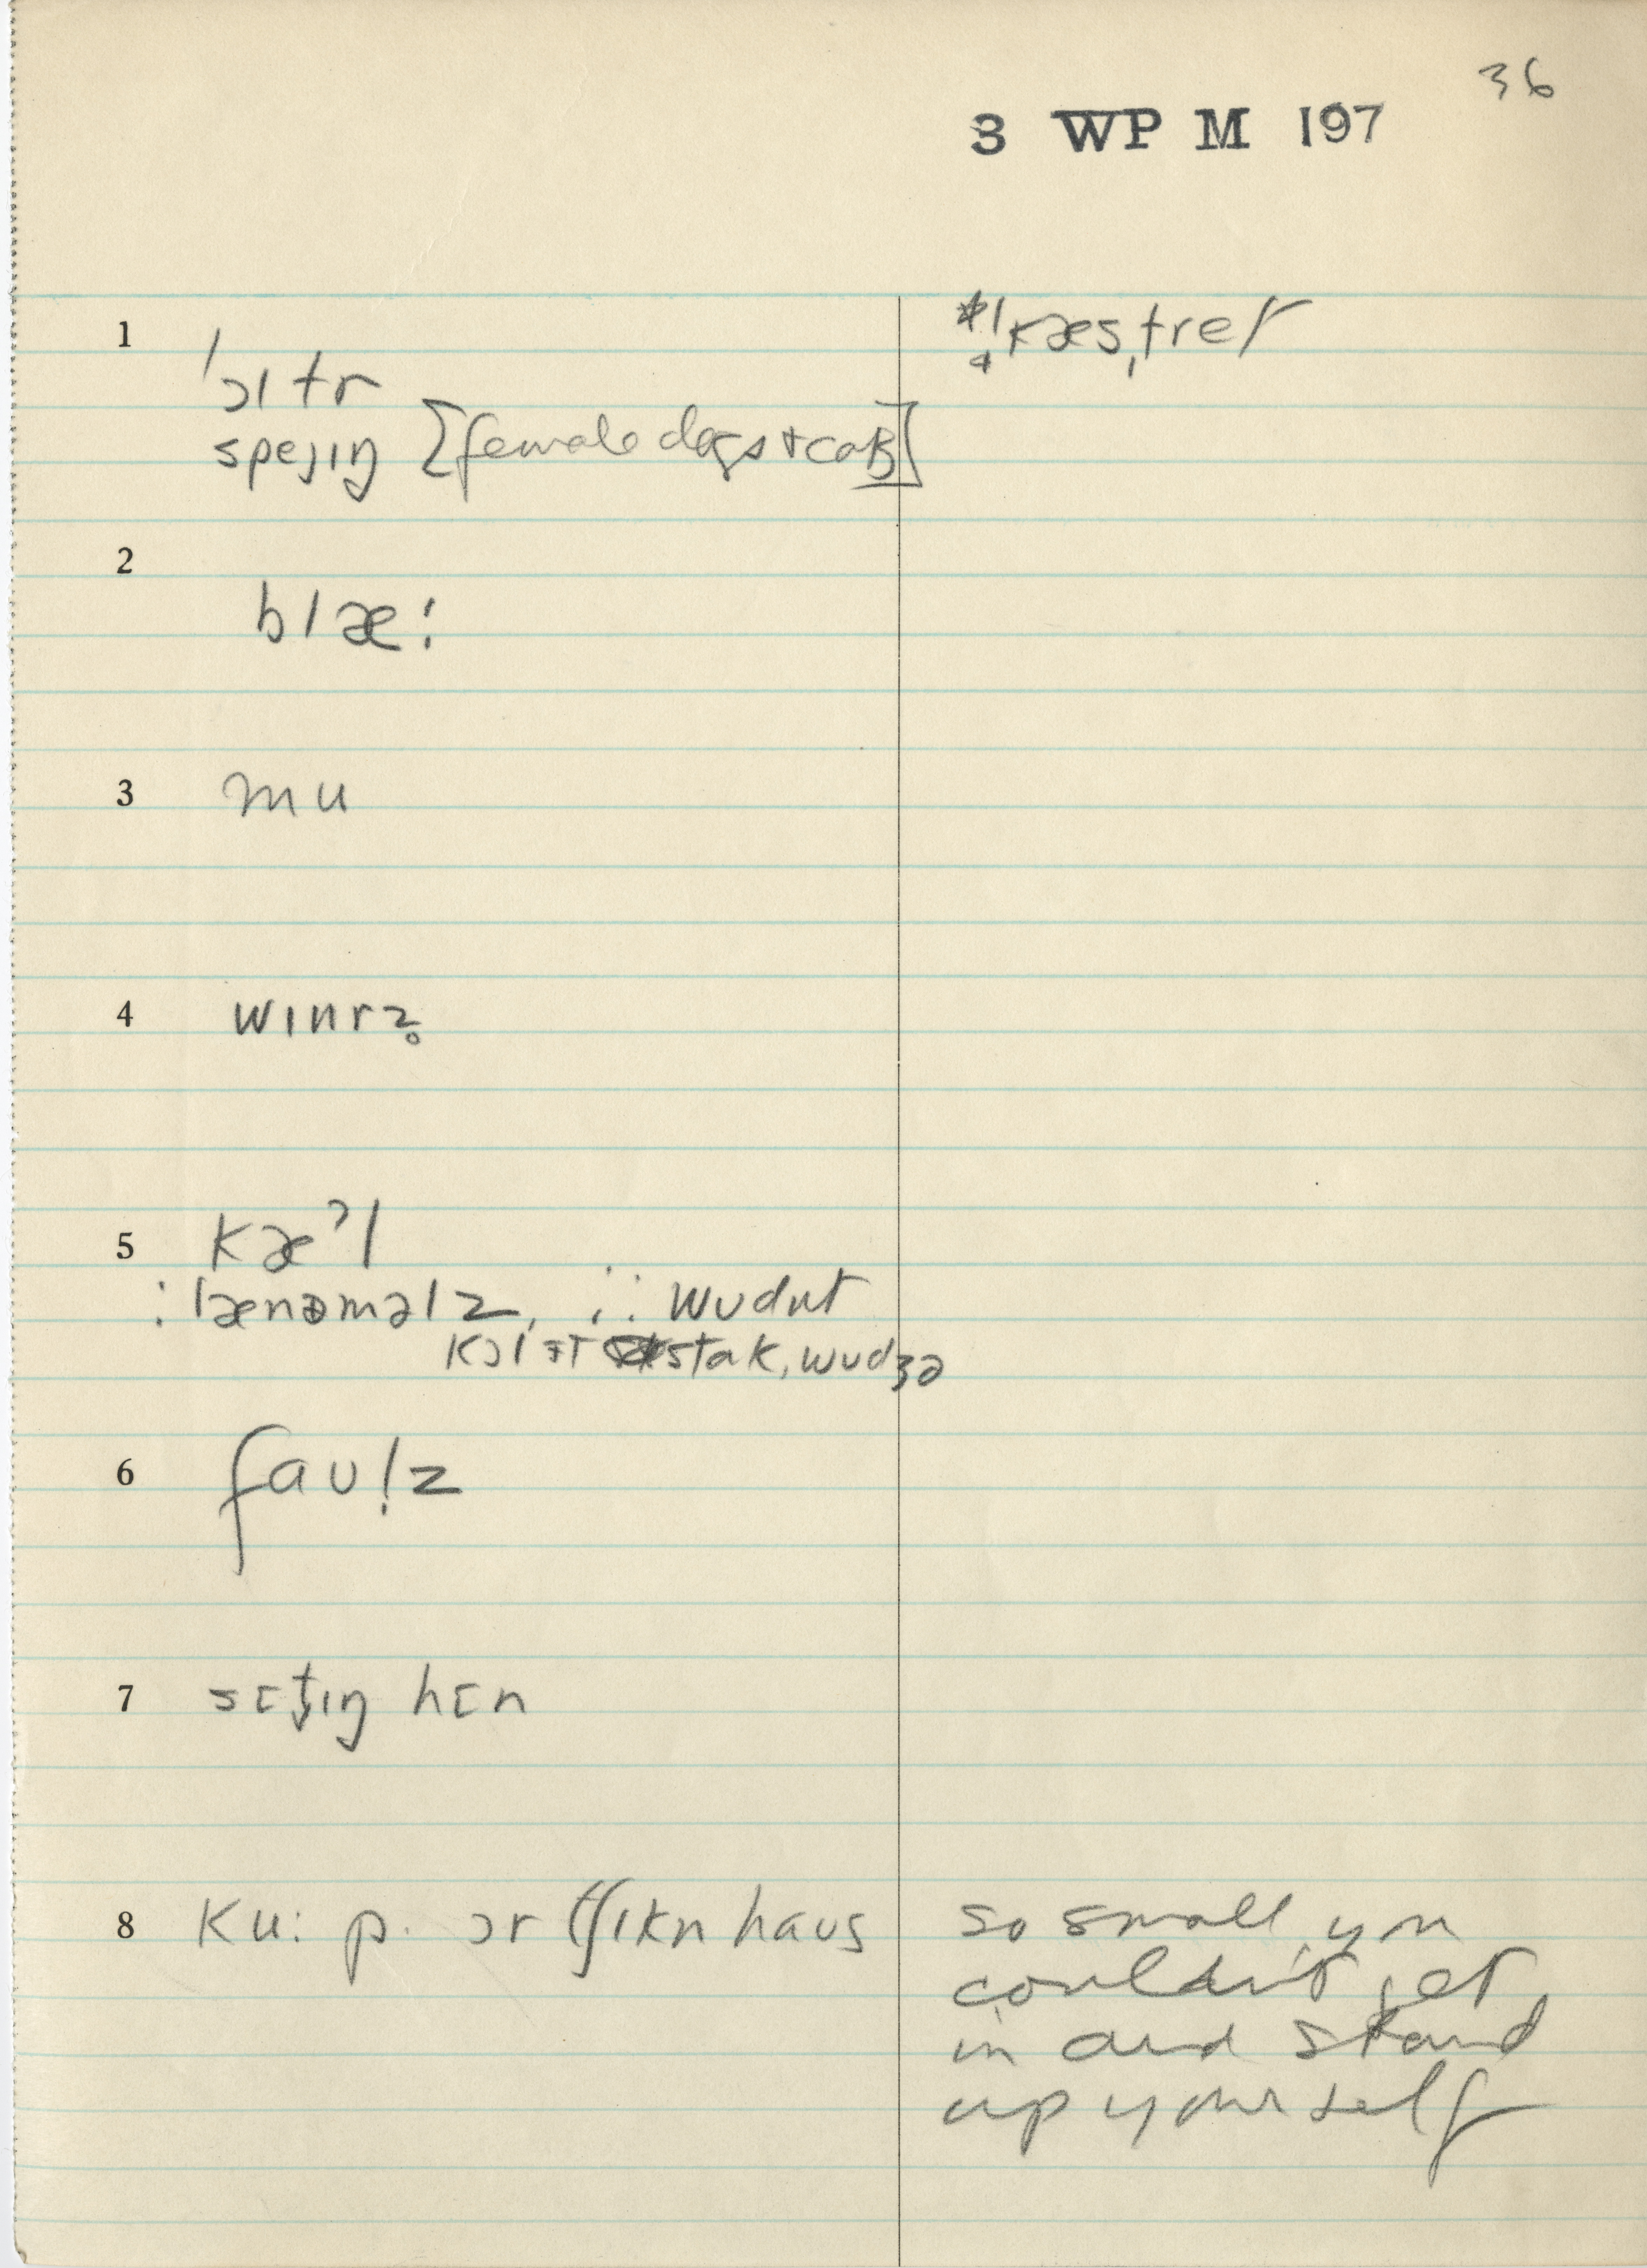 36
3 WP M 197
1 ˈɔltr *ˈkæsˌtret
speɪɪŋ [female dogs + cats]
2
blæ:
3 mu
4 wɪnrz̥
5 kæʔl
: lænəməlz, ∴ wudnt
kɔl ɪt stak, wudʒə
6 faul̩z
7 sɛt̬ɪŋ hɛn
8 ku: p. ɔr tʃɪkn haus so small you
couldn't get
in and stand
up yourself